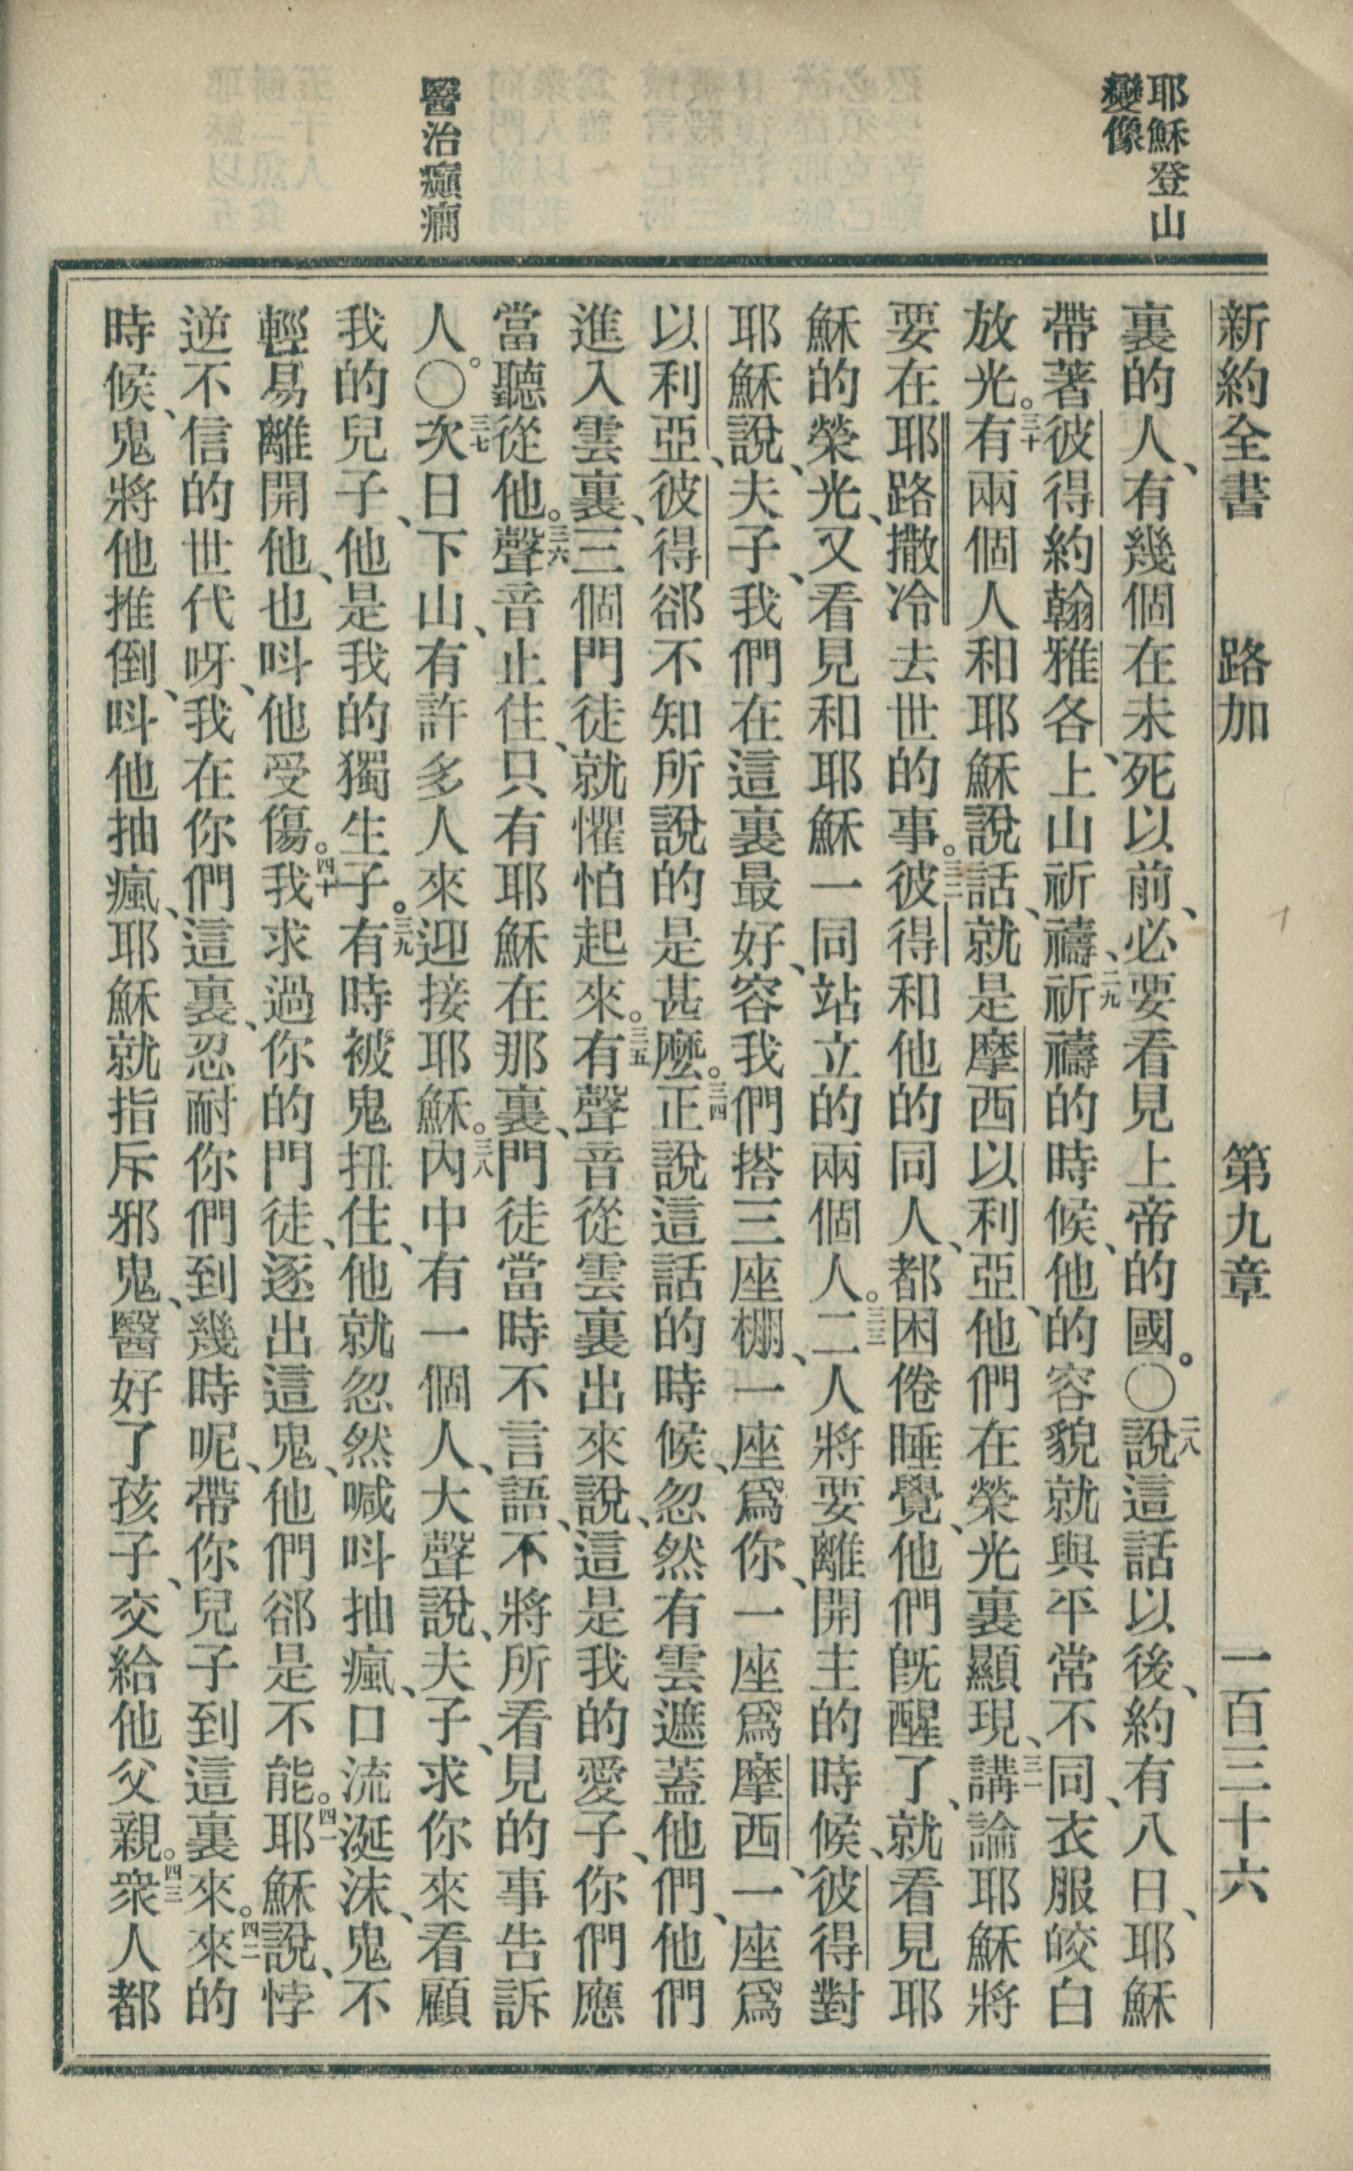 耶穌登山
變像
醫治癲癇
新約全書 路加 第九章 一百三十六
裏的人、有幾個在未死以前、必要看見上帝的國。〇二八說這話以後、約有八日、耶穌
帶著彼得約翰雅各、上山祈禱、二九祈禱的時候、他的容貌就與平常不同、衣服皎白
放光。三十有兩個人和耶穌說話、就是摩西以利亞、他們在榮光裏顯現、三一講論耶穌將
要在耶路撒冷去世的事。三二彼得和他的同人、都困倦睡覺、他們旣醒了、就看見耶
穌的榮光、又看見和耶穌一同站立的兩個人。三三二人將要離開主的時候、彼得對
耶穌說、夫子、我們在這裏最好、容我們搭三座棚、一座爲你、一座爲摩西、一座爲
以利亞、彼得郤不知所說的是甚麼。三四正說這話的時候、忽然有雲遮蓋他們、他們
進入雲裏、三個門徒就懼怕起來。三五有聲音從雲裏出來說、這是我的愛子、你們應
當聽從他。三六聲音止住、只有耶穌在那裏、門徒當時不言語、不將所看見的事告訴
人。〇三七次日下山、有許多人來迎接耶穌。三八內中有一個人、大聲說、夫子、求你來看顧
我的兒子、他是我的獨生子。三九有時被鬼扭住、他就忽然喊呌抽瘋、口流涎沫、鬼不
輕易離開他、也呌他受傷。四十我求過你的門徒、逐出這鬼、他們郤是不能。四一耶穌說、悖
逆不信的世代呀、我在你們這裏、忍耐你們到幾時呢、帶你兒子到這裏來。四二來的
時候、鬼將他推倒、呌他抽瘋、耶穌就指斥邪鬼、醫好了孩子、交給他父親。四三衆人都